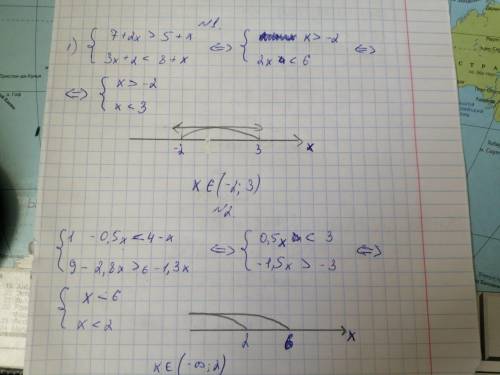 №1
1) { 7+2x > 5+x ⇔ { x > -2 ⇔
3x+2 < 8+x 2x < 6
⇔ { x > -2
x < 3
-2 3 x
x ∈ (-2; 3)
№2
{ 1 - 0,5x < 4-x ⇔ { 0,5x < 3 ⇔
9 - 2,8x > 6 - 1,3x -1,5x > -3
{ x < 6
x < 2
2 6 x
x ∈ (-∞; 2)